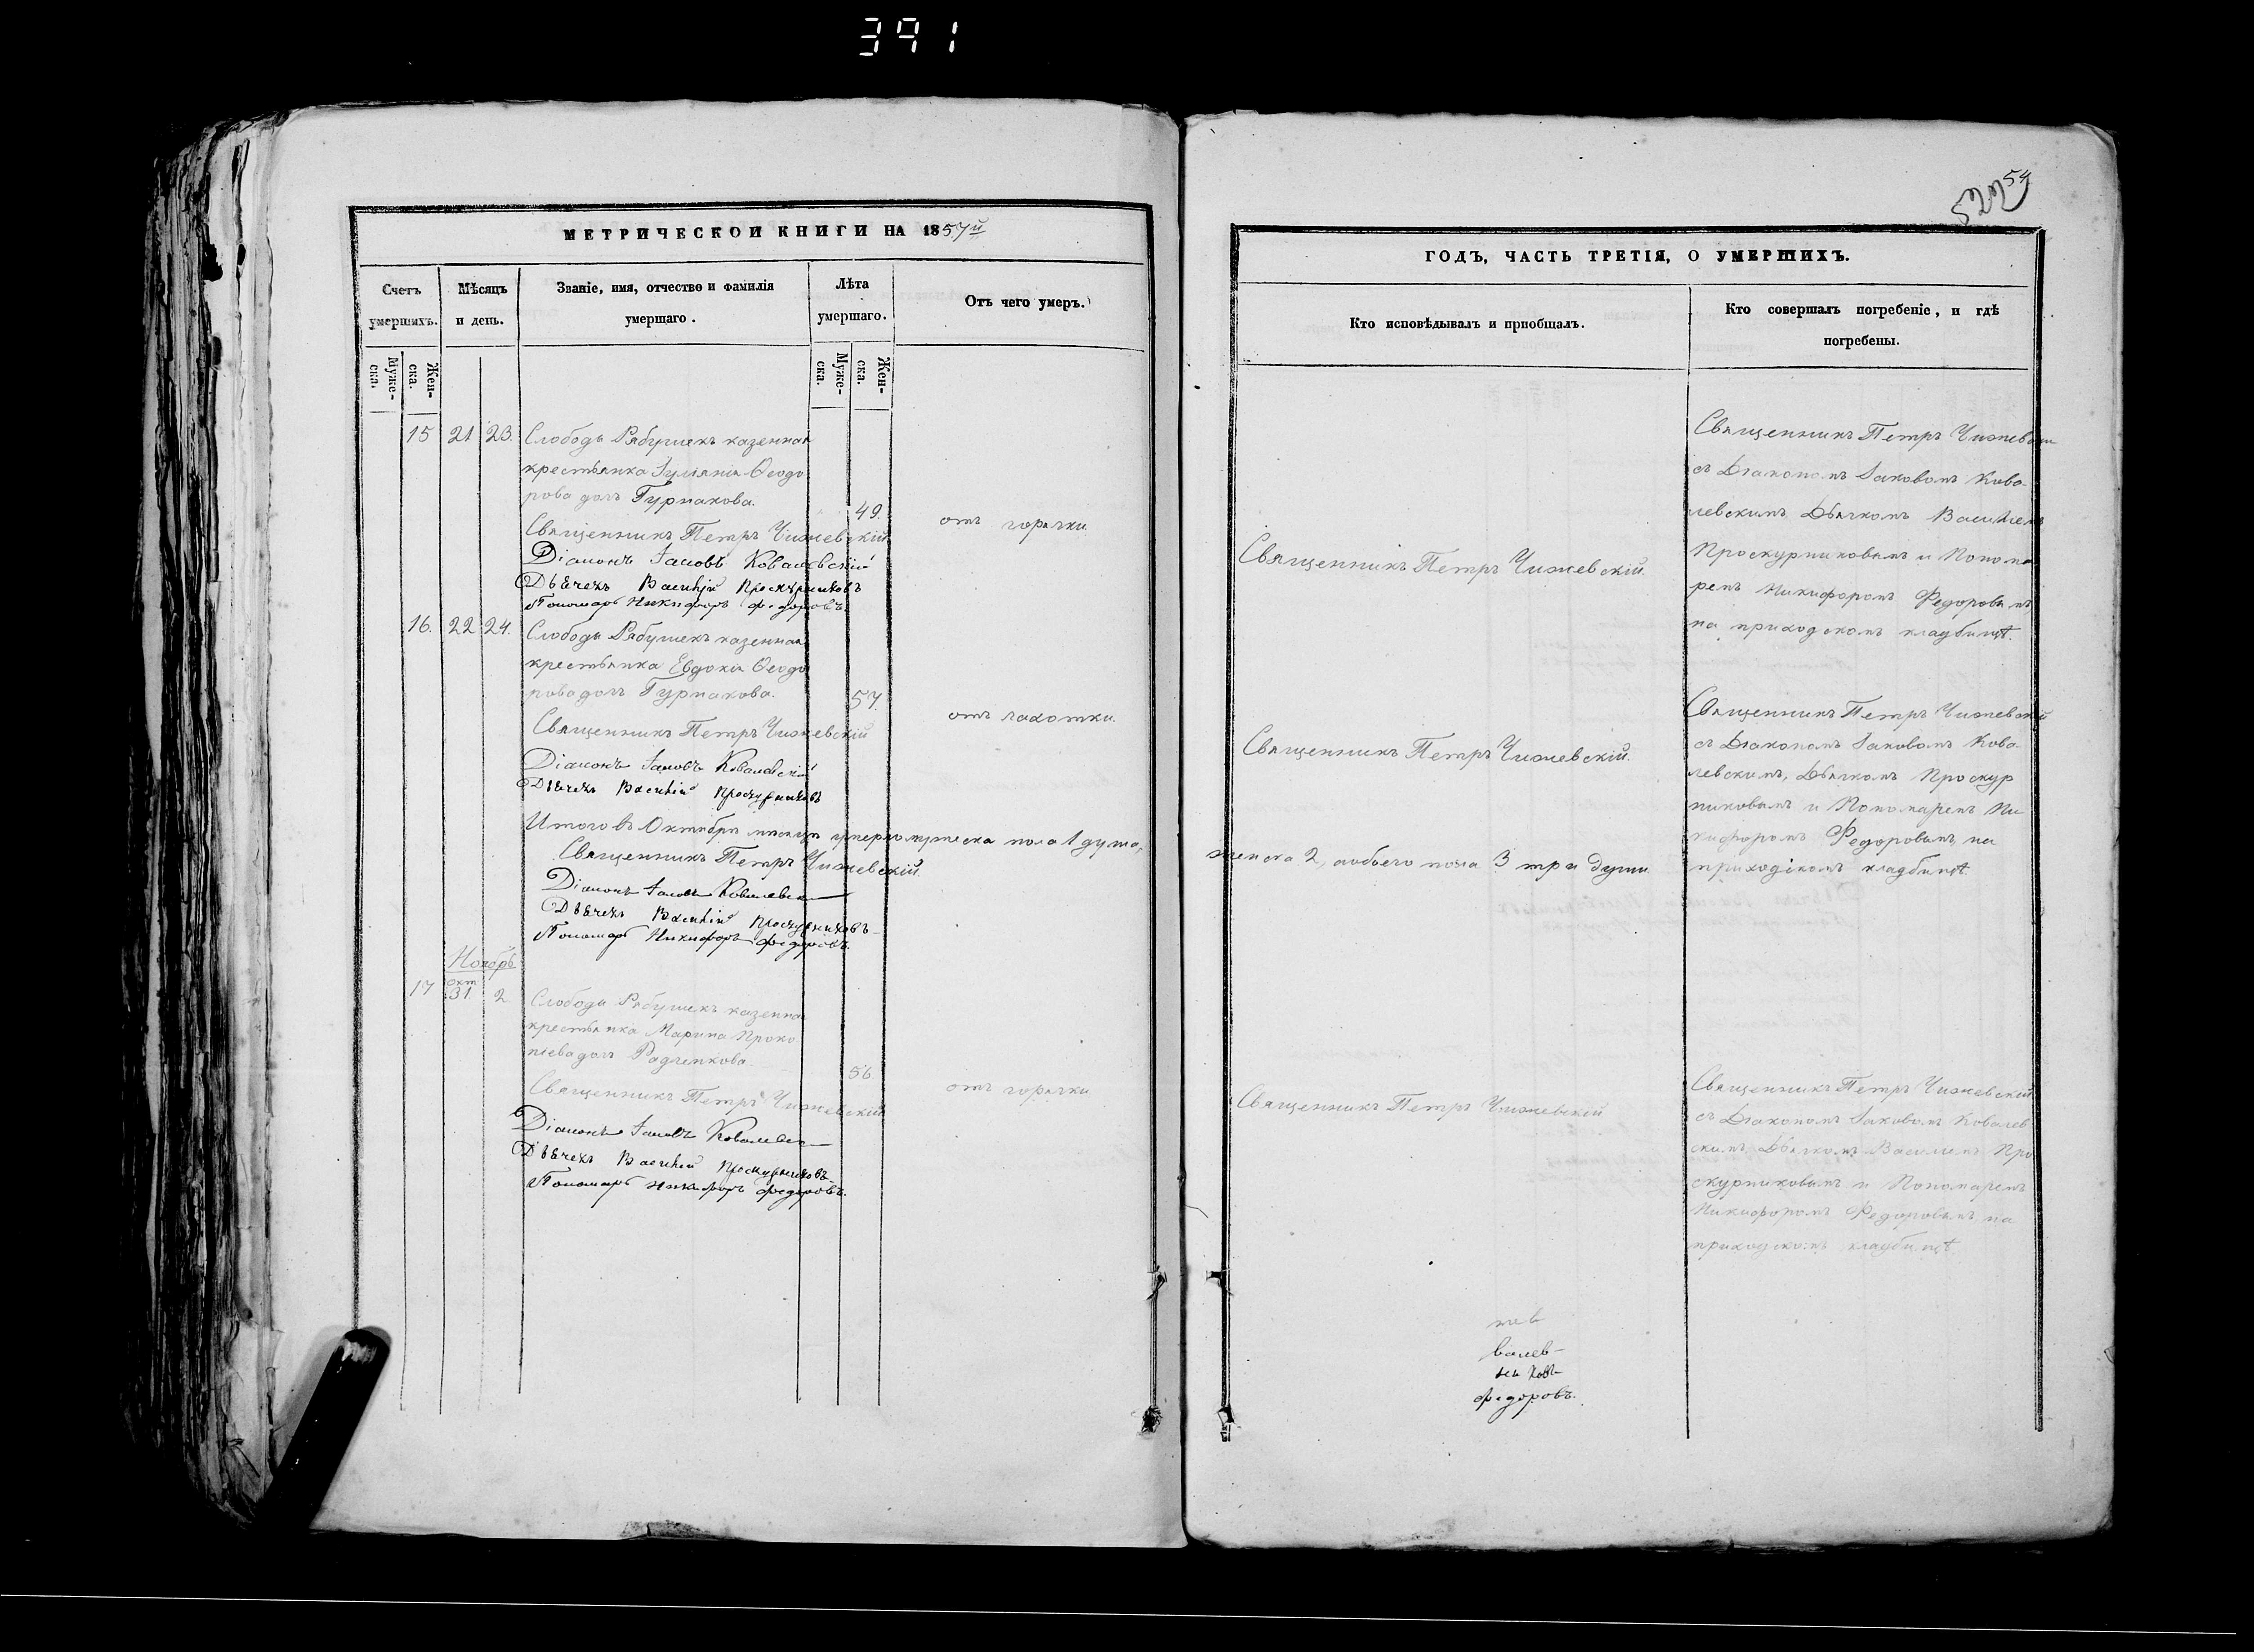 391
МЕТРИЧЕСКОЙ КНИГИ НА 1857й
Счетъ умершихъ.
Мѣсяцъ и день.
Званіе, имя, отчество и фамилія умершаго.
Лѣта умершаго.
Отъ чего умеръ.
Муже-ска.
Жен-ска.
Муже-ска.
Жен-ска.
15 21 23. Слободы Рябушекъ казенная
крестьянка Іуліанія Ѳеодо
рова дочь Гурнакова.
49.
отъ горячки.
Священникъ Петръ Чижевскій
Діаконъ Іаковъ Ковалевскій
Дьячекъ Василій Проскурниковъ
Пономарь Никифоръ Федоровъ.
16. 22 24. Слободы Рябушекъ казенная
крестьянка Евдокія Ѳеодо
рова дочь Гурнакова.
57.
отъ чахотки.
Священникъ Петръ Чижевскій
Діаконъ Іаковъ Ковалевскій
Дьячекъ Василій Проскурниковъ
Итого въ Октябрѣ мѣсяцѣ умерло мужеска пола 1 душа,
Священникъ Петръ Чижевскій.
Діаконъ Іаковъ Ковалевск
Дьячекъ Василій Проскурниковъ
Пономарь Никифоръ Федоровъ.
Ноябрь
17 Окт. 31 2 Слободы Рябушекъ казенная
крестьянка Марина Проко
піева дочь Радченкова.
56
отъ горячки
Священникъ Петръ Чижевскій
Діаконъ Іаковъ Ковалевск
Дьячекъ Василій Проскурниковъ
Пономарь Никифоръ Федоровъ.
54
522
ГОДЪ, ЧАСТЬ ТРЕТІЯ, О УМЕРШИХЪ.
Кто исповѣдывалъ и пріобщалъ.
Кто совершалъ погребеніе, и гдѣ
погребены.
Священникъ Петръ Чижевскій.
Священникъ Петръ Чижевскій
съ Діакономъ Іаковомъ Кова
левскимъ, Дьячкомъ Василіемъ
Проскурниковымъ и Понома
ремъ Никифоромъ Федоровымъ
на приходскомъ кладбищѣ.
Священникъ Петръ Чижевскій.
Священникъ Петръ Чижевскій
съ Діакономъ Іаковомъ Кова
левскимъ, Дьячкомъ Проскур
никовымъ и Пономаремъ Ни
кифоромъ Федоровымъ, на
приходскомъ кладбищѣ.
женска 2, обоего пола 3 три души
Священникъ Петръ Чижевскій
Священникъ Петръ Чижевскій
съ Діакономъ Іаковомъ Ковалев
скимъ, Дьячкомъ Василіемъ Про
скурниковымъ и Пономаремъ
Никифоромъ Федоровымъ на
приходскомъ кладбищѣ
жев
валев-
никовъ
Федоровъ.